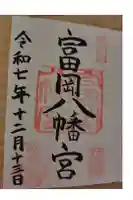 富岡八幡宮
令和七年十二月十三日